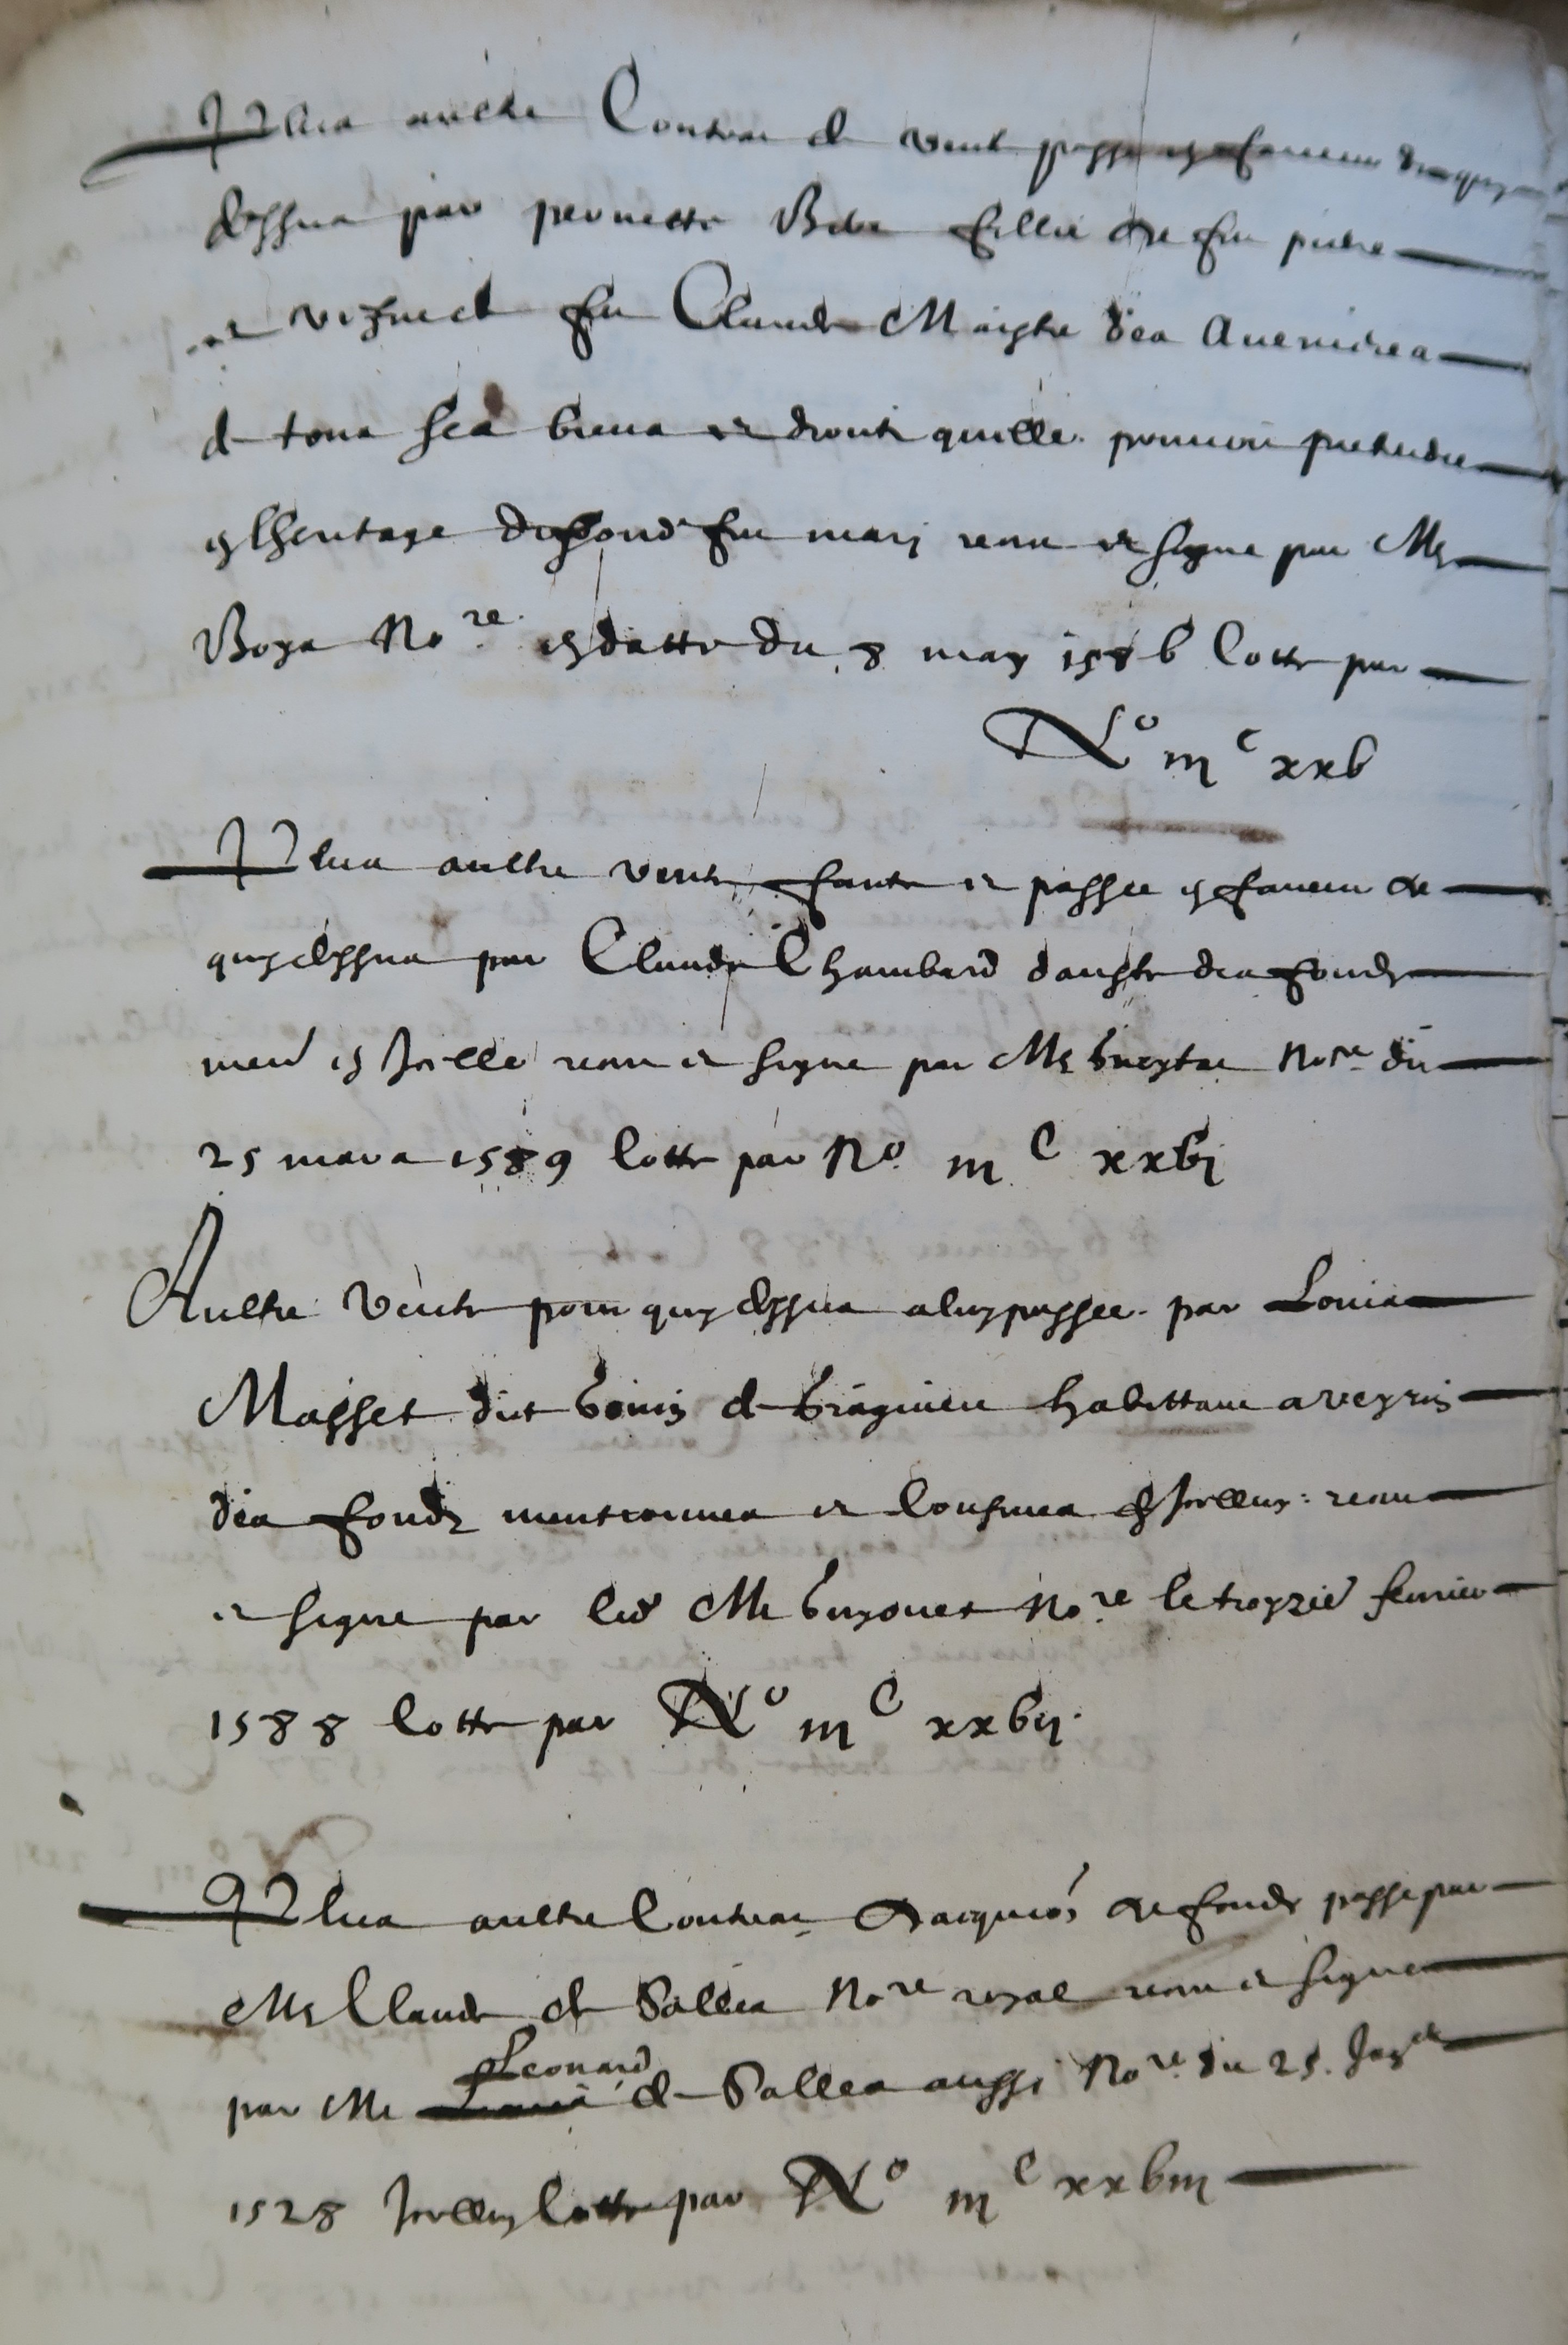 Plus aultre Contrac de vente passe en faueur de quy
dessus par pernette Bebe fillie de feu pierre
et vefue de feu Claude Maistre des Auenieres
de tous ses biens et droits quelle pouuoit pretendre
en lheritage dudond feu mary receu et signe par Me
Boys Nore en datte du 8 may 1586 Cotte par
No iiic xxv
Plus aultre vente faicte et passee en faueur de
quy dessus par Claude Chambard dauste des fonds
mend en Icelle receu et signe par Me Nore du
25 mars 1589 Cotte par No iiic xxvi
Aultre vente pour quy dessus a luy passee par Louis
Masset dict bouin de braguieu habittant a veyrin
des fonds mentionnes et Confines en Icelluy receu
et signe par led Me guyonet Nore le troyzie feurier
1588 Cotte par No iiic xxvii
Plus aultre Contrac dacquion de fonds passe par
Me Claude de Salles Nore royal receu et signe
par Me Leonard de Salles aussi Nore du 25 Janer
1528 Icelluy Cotte par No iiic xxviii